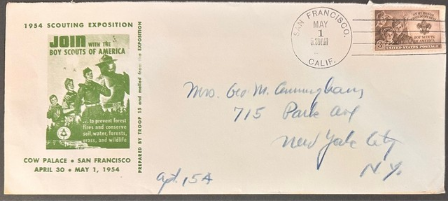 1954 SCOUTING EXPOSITION
JOIN WITH THE
BOY SCOUTS OF AMERICA
... to prevent forest
fires and conserve
soil, water, forests,
grass, and wildlife
COW PALACE • SAN FRANCISCO
APRIL 30 • MAY 1, 1954
PREPARED BY TROOP 12 and EXPOSITION
SAN FRANCISCO,
MAY
1
CALIF.
Mrs. Geo M. Cunningham
715 Park Ave
New York City
N.Y.
Apt. 15A